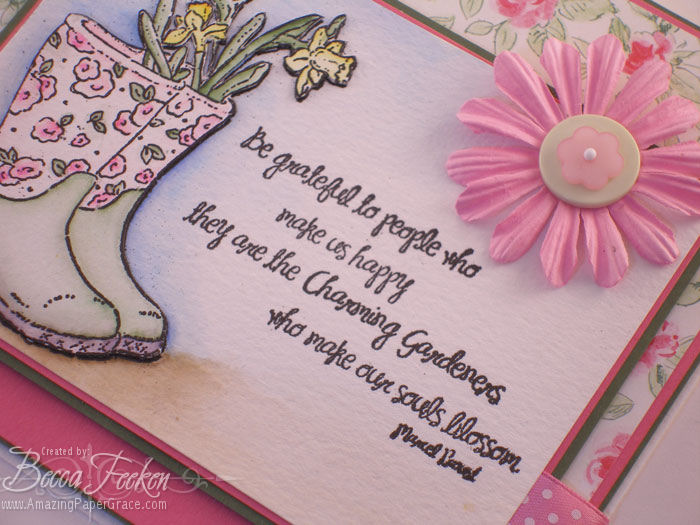 Be grateful to people who
make us happy
they are the Charming Gardeners
who make our souls blossom
Marcel
Created by:
Becca Feeken
www.AmazingPaperGrace.com